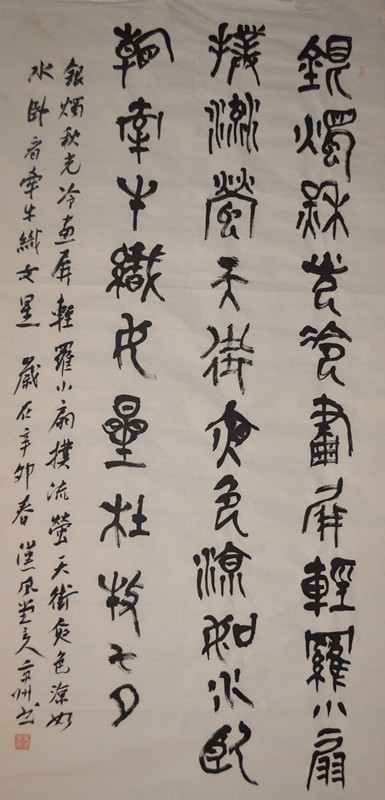 銀燭秋光冷畫屏輕羅小扇
撲流螢天街夜色涼如水臥
看牽牛織女星杜牧七夕
銀燭秋光冷畫屏輕羅小扇撲流螢天街夜色涼如
水臥看牽牛織女星 歲在辛卯春漢風堂主人京州书